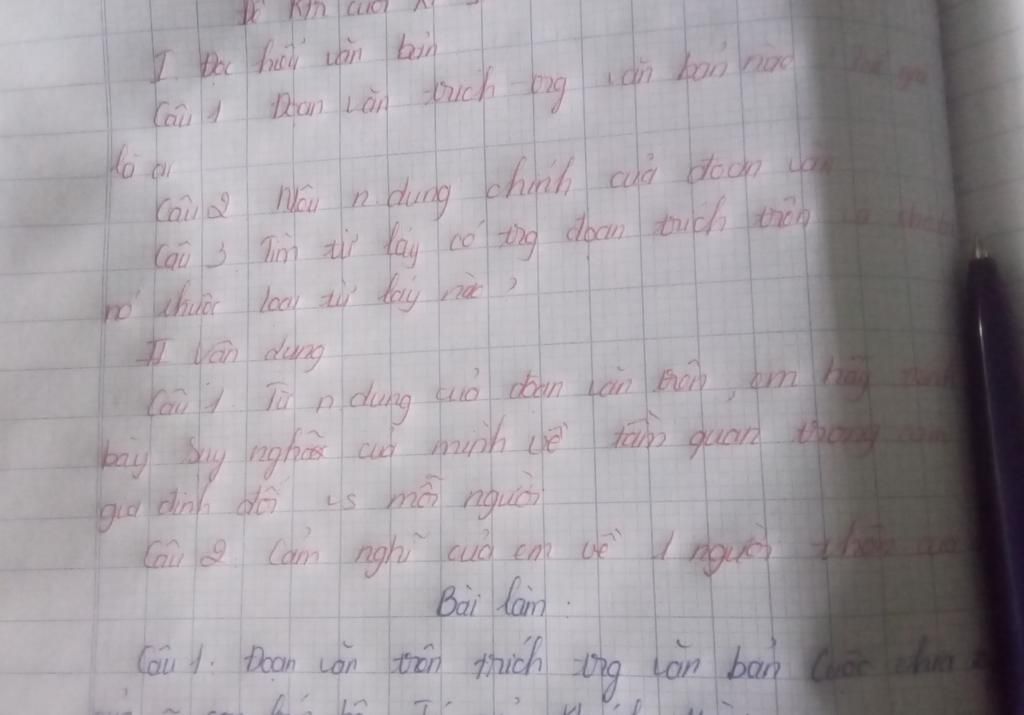 I Đọc hiểu văn bản
Câu 1 Đoạn văn trích trg văn bản nào
là ai
Câu 2 Nêu n.dung chính của đoạn văn
Câu 3 Tìm từ láy có trg đoạn trích trên
nó thuộc loại từ láy nào?
II Vận dụng
Câu 1. Từ n.dung của đoạn văn trên, em hãy
bày suy nghĩ của mình về tầm quan trọng
gia đình đối vs mỗi người
Câu 2. Cảm nghĩ của em về 1 người thân
Bài làm.
Câu 1. Đoạn văn trên trích trg văn bản Cuộc chia